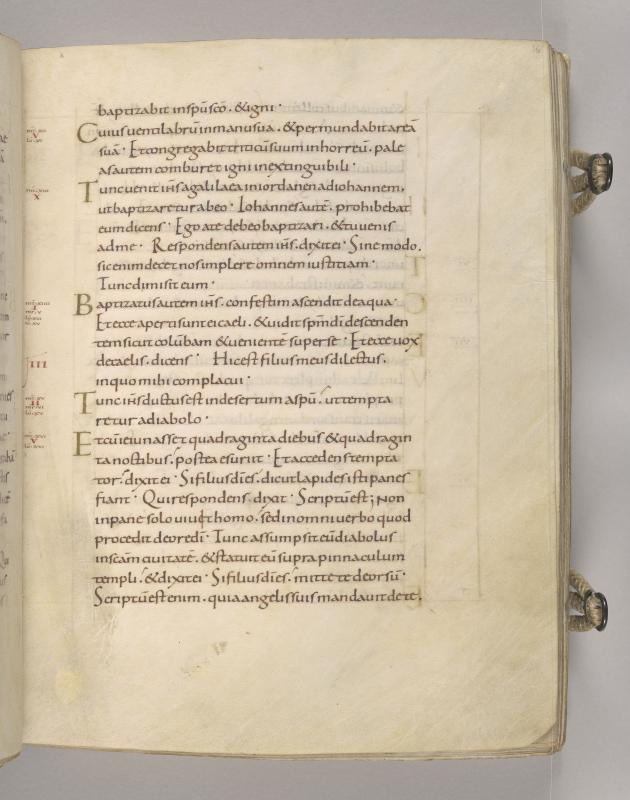 baptizabit inspūscō. &igni·
Cuiusuentilabrūinmanusua. &permundabitareā
suā· Etcongregabittriticūsuuminhorreū. pale
asautemcomburetigniinextinguibili·
Tuncuenitihs̄agalilaeainiordanenadiohannem.
utbaptizareturabeo· Iohannesautē. prohibebat
eumdicens· Egoatedebeobaptizari. &tuuenis
adme· Respondensautemihs̄. dixitei· Sinemodo.
sicenimdecetnosimplereomnemiustitiam·
Tuncdimisiteum·
Baptizatusautemihs̄. confestimascenditdeaqua·
Etecceapertisunteicaeli. &uiditspm̄dīdescenden
temsicutcolūbam&uenientēsuperse· Etecceuox
decaelis. dicens· Hicestfiliusmeusdilectus.
inquomihicomplacui·
Tuncihs̄ductusestindesertumaspū. uttempta
returadiabolo·
Etcūieiunass&quadragintadiebus&quadragin
tanoctibus. posteaesuriit· Etaccedenstempta
tor. dixitei· Sifiliusdīes. dicutlapidesistipanes
fiant· Quirespondens. dixit· Scriptūest; Non
inpanesolouiuithomo. sedinomniuerboquod
procedit deoredī· Tunc assumpsiteūdiabolus
inscāmciuitatē. &statuiteūsuprapinnaculum
templi. &dixitei· Sifiliusdīes. mittetedeorsū·
Scriptūestenim. quiaangelissuismandauitdete.
V
X
I
III
II
V